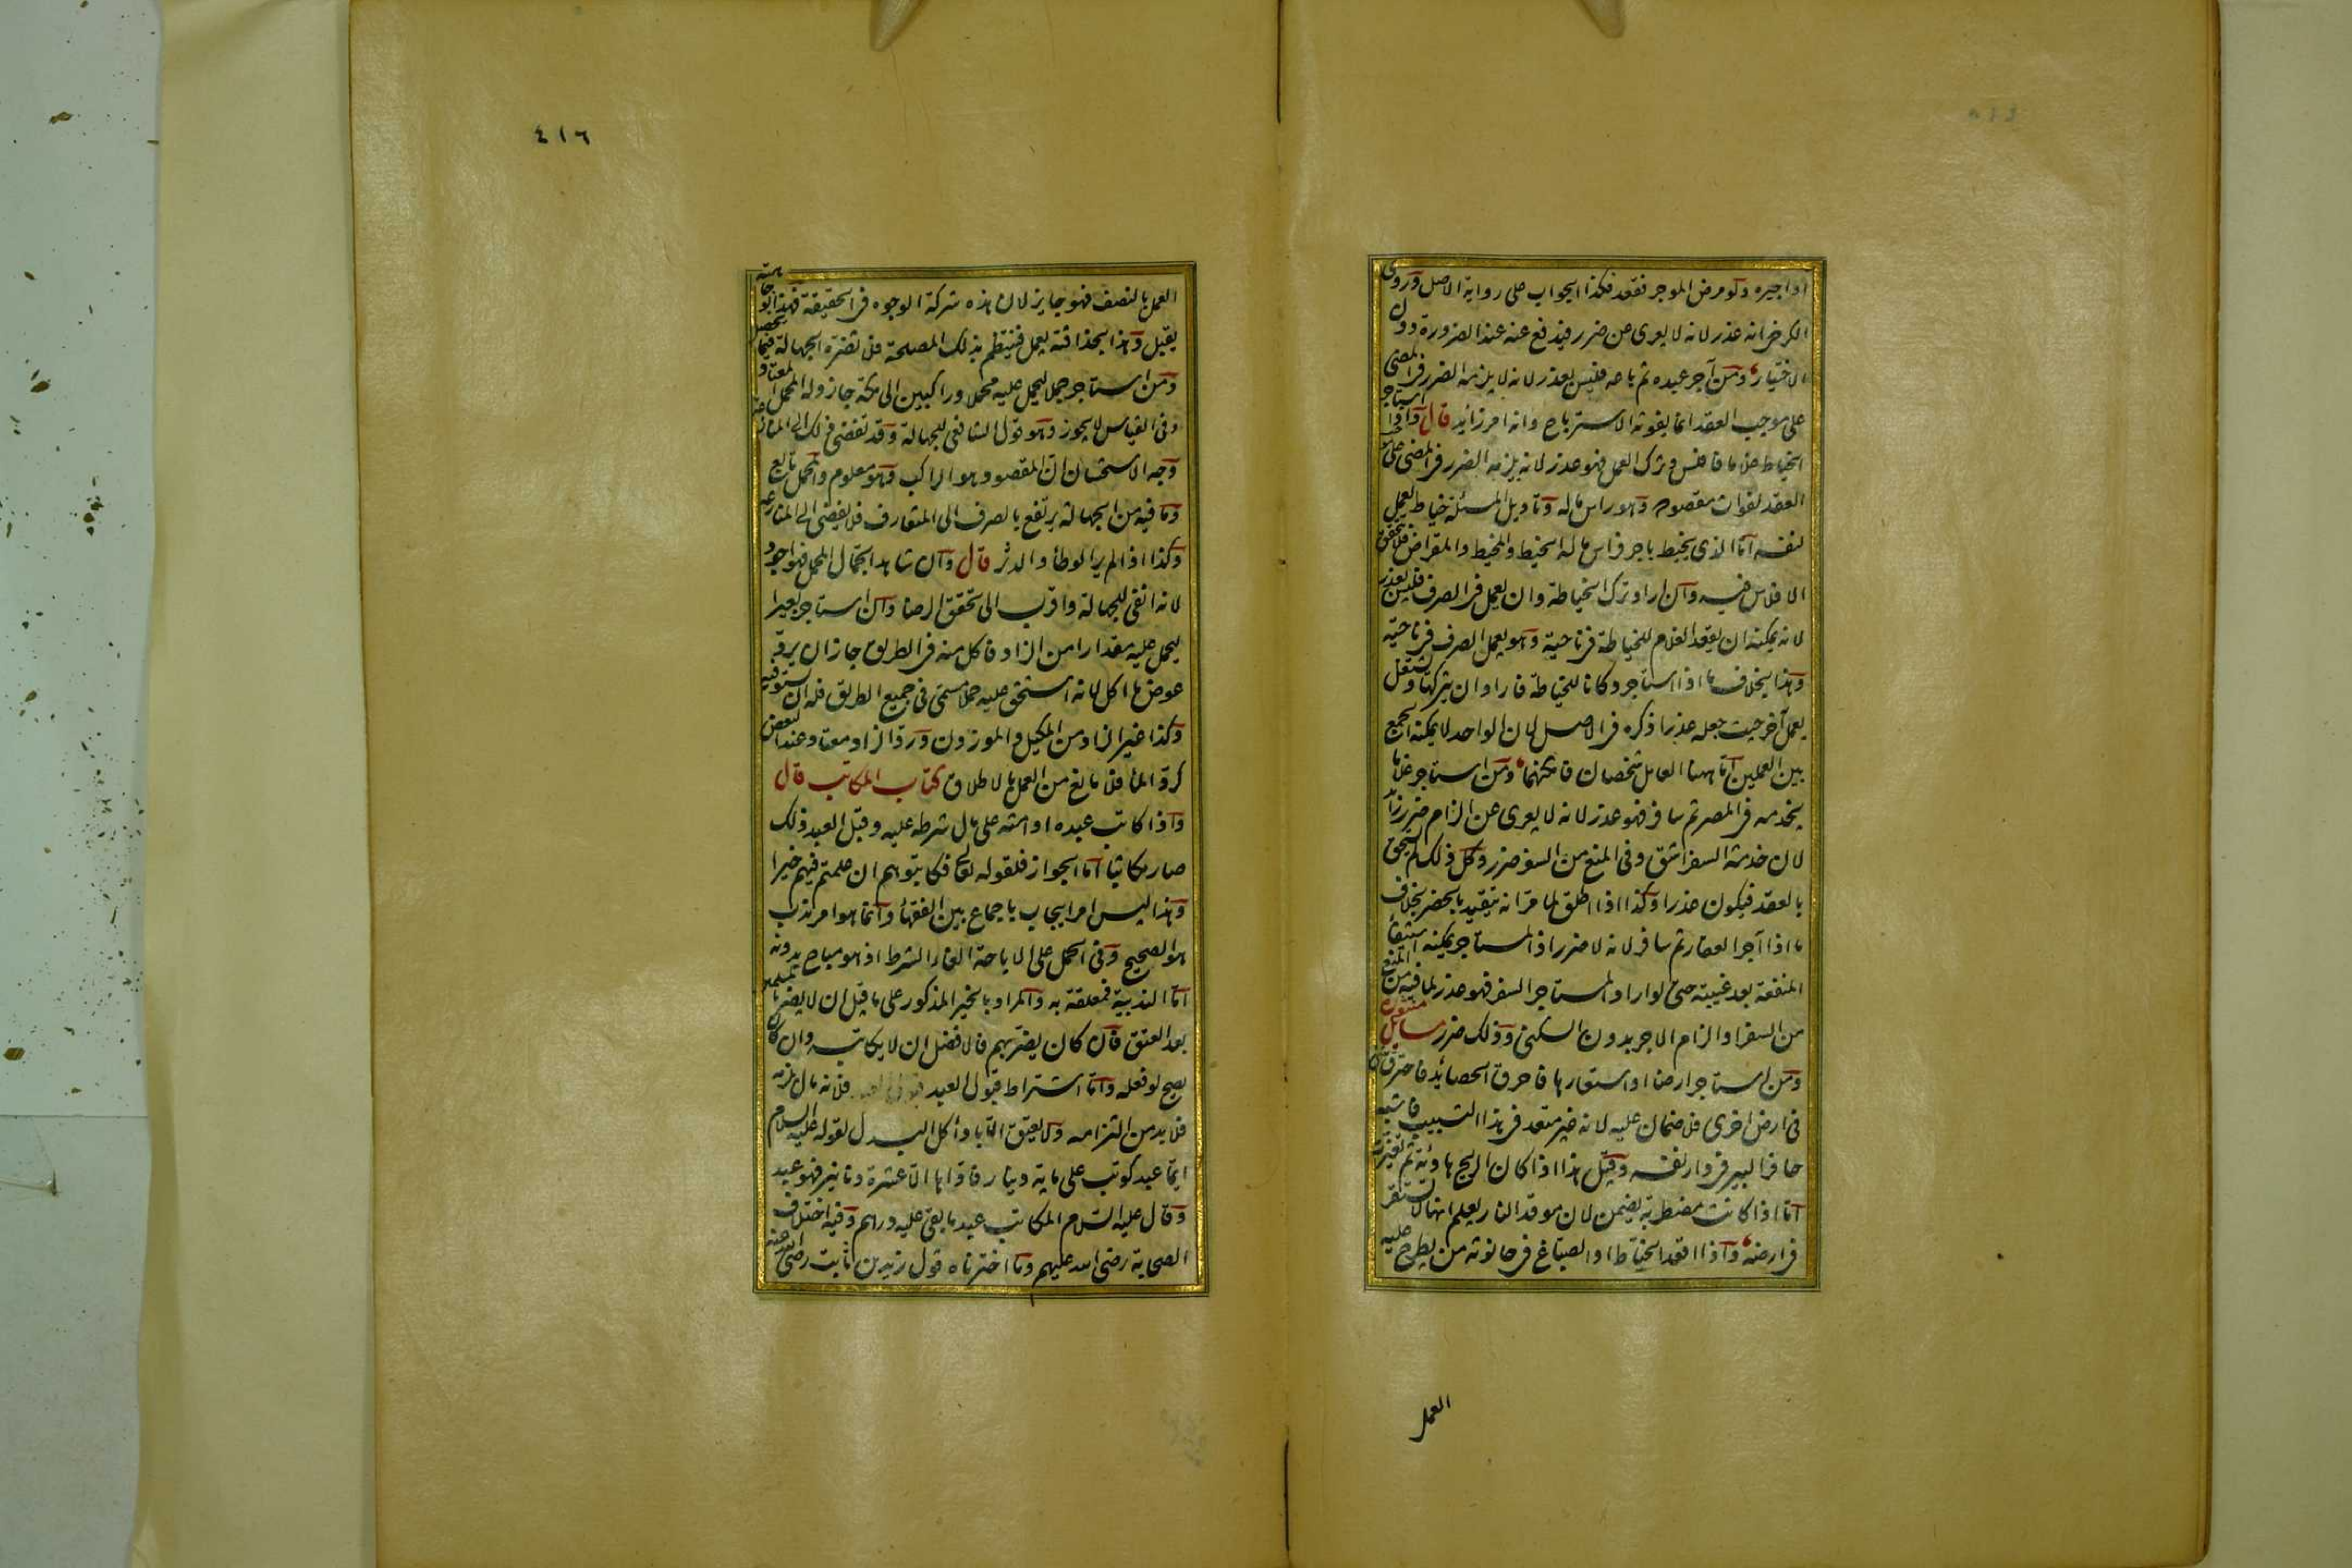 او اجيره ولو مرض الموجر فقعد فكذا الجواب على رواية الاصل وروى
الكرخى انه عذر لانه لا يعرى عن ضرر فيدفع عنه عند الضرورة دون
الاختيار ومن آجر عبده ثم باعه فليس بعذر لانه لا يلزمه الضرر فى المضى
على موجب العقد انما يفوته الاسترباح وانه امر زايد قال واذا استاجر
الخياط غلاما فافلس وترك العمل فهو عذر لانه يلزمه الضرر فى المضى على موجب
العقد لفوات مقصوده وهو راس ماله وتاويل المسئلة خياط يعمل
لنفسه اما الذى يخيط باجر فراس ماله الخيط والمخيط والمقراض فلا يتحقق
الافلاس فيه وان اراد ترك الخياطة وان يعمل فى الصرف فليس بعذر
لانه يمكنه ان يقعد الغلام للخياطة فى ناحية وهو يعمل الصرف فى ناحية
وهذا بخلاف ما اذا استاجر دكانا للخياطة فاراد ان يتركها ويشتغل
بعمل آخر حيث جعله عذرا ذكره فى الاصل لان الواحد لا يمكنه الجمع
بين العملين اما ههنا العامل شخصان فامكنهما ومن استاجر غلاما
يخدمه فى المصر ثم سافر فهو عذر لانه لا يعرى عن الزام ضرر زايد
لان خدمة السفر اشق وفى المنع من السفر ضرر وكل ذلك لم يستحق
بالعقد فيكون عذرا وكذا اذا اطلق لما مر انه يتقيد بالحضر بخلاف
ما اذا آجر العقار ثم سافر لانه لا ضرر اذ المستاجر يمكنه استيفاء
المنفعة بعد غيبته حتى لو اراد المستاجر السفر فهو عذر لما فيه من المنع
من السفر او الزام الاجر بدون السكنى وذلك ضرر مسائل منثورة
ومن استاجر ارضا او استعارها فاحرق الحصائد فاحترق شئ
فى ارض اخرى فلا ضمان عليه لانه غير متعد فى هذا التسبيب فاشبه
حافر البير فى دار نفسه وقيل هذا اذا كان الريح هادئة ثم تغيرت
اما اذا كانت مضطربة يضمن لان موقد النار يعلم انها لا تستقر
فى ارضه واذا اقعد الخياط او الصباغ فى حانوته من يطرح عليه
العمل
٤١٦
العمل بالنصف فهو جايز لان هذه شركة الوجوه فى الحقيقة فهذا بوجاهته
يقبل وهذا بحذاقته يعمل فينتظم بذلك المصلحة فلا تضره الجهالة فيما يحصل
ومن استاجر جملا ليحمل عليه محملا وراكبين الى مكة جاز وله المحمل المعتاد
وفى القياس لا يجوز وهو قول الشافعى للجهالة وقد تفضى ذلك الى المنازعة
وجه الاستحسان ان المقصود هو الراكب وهو معلوم والمحمل تابع
وما فيه من الجهالة يرتفع بالصرف الى المتعارف فلا يفضى الى المنازعة
وكذا اذا لم ير الوطأ والدثر قال وان شاهد الجمال المحمل فهو اجود
لانه انفى للجهالة واقرب الى تحقق الرضا وان استاجر بعيرا
ليحمل عليه مقدارا من الزاد فاكل منه فى الطريق جاز ان يرد
عوض ما اكل لانه استحق عليه حملا مسمى فى جميع الطريق فله ان يستوفيه
وكذا غير الزاد من المكيل والموزون ورد الزاد معتاد عند البعض
كرد الماء فلا مانع من العمل بالاطلاق كتاب المكاتب قال
واذا كاتب عبده او امته على مال شرطه عليه وقبل العبد ذلك
صار مكاتبا اما الجواز فلقوله تعالى فكاتبوهم ان علمتم فيهم خيرا
وهذا ليس امر ايجاب باجماع بين الفقهاء وانما هو امر ندب
هو الصحيح وفى الحمل على الاباحة الغاء الشرط اذ هو مباح بدونه
اما الندبية فمعلقة به والمراد بالخير المذكور على ما قيل ان لا يضر بالمسلمين
بعد العتق فان كان يضر بهم فالافضل ان لا يكاتبه وان كان
يصح لو فعله واما اشتراط قبول العبد فلانه مال يلزمه
فلا بد من التزامه ولا يعتق الا باداء كل البدل لقوله عليه السلام
ايما عبد كوتب على ماية دينار فاداها الا عشرة دنانير فهو عبد
وقال عليه السلام المكاتب عبد ما بقى عليه درهم وفيه اختلاف
الصحابة رضى الله عليهم وما اخترناه قول زيد بن ثابت رضى الله عنه